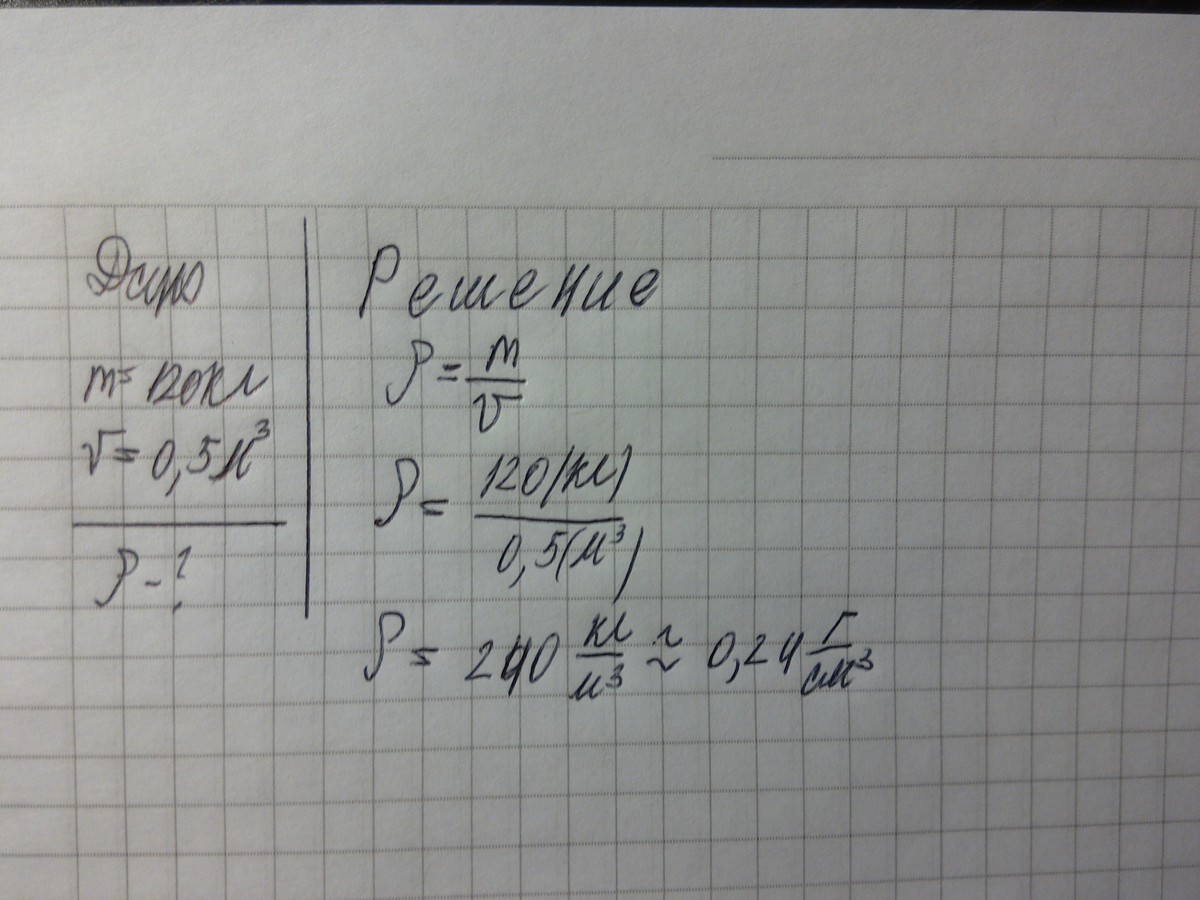 Дано
m= 120кг
V= 0,5м³
ρ-?
Решение
ρ=m/V
ρ= 120(кг)/0,5(м³)
ρ= 240 кг/м³ ≈ 0,24 г/см³